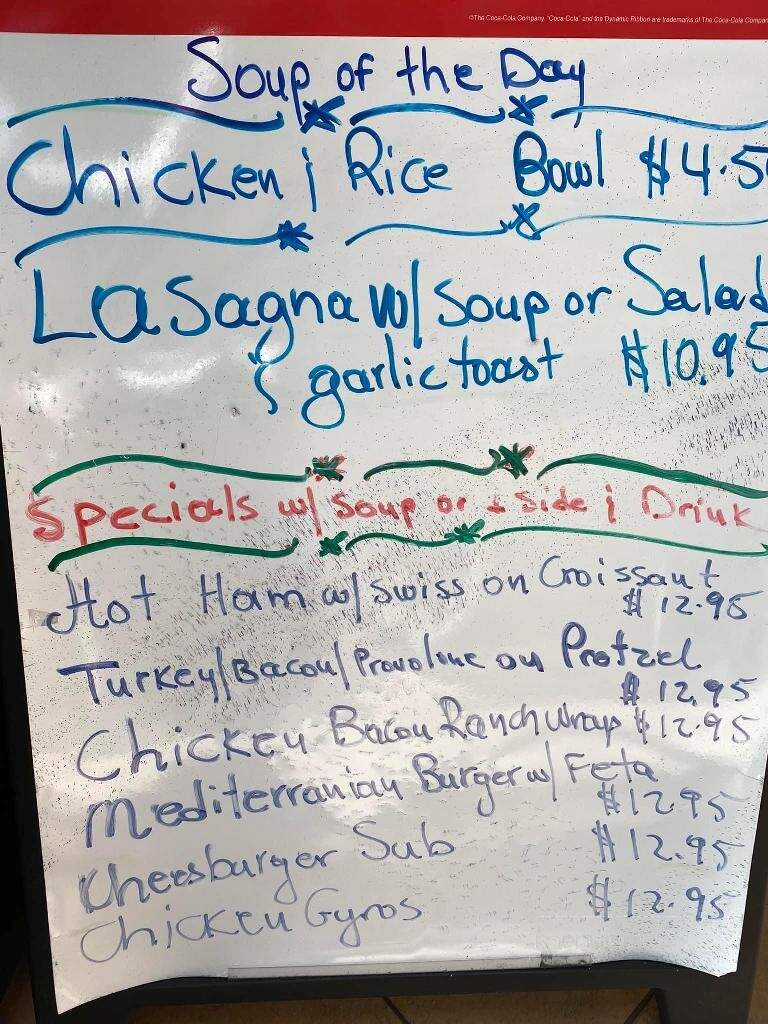 ©The Coca-Cola Company. "Coca-Cola" and the Dynamic Ribbon are trademarks of The Coca-Cola Compan
Soup of the Day
Chicken & Rice Bowl $4.5
Lasagna w/ Soup or Salad
& garlic toast $10.95
Specials w/ Soup or 1 Side & Drink
Hot Ham w/ Swiss on Croissant
$12.95
Turkey/Bacon/Provolone on Pretzel
$12.95
Chicken Bacon Ranch Wrap $12.95
Mediterranian Burger w/ Feta
$12.95
Cheesburger Sub $12.95
Chicken Gyros $12.95